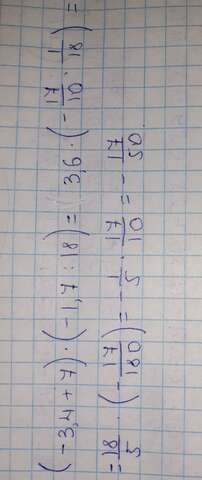 (-3,4 + 7) · (-1,7 : 18) = 3,6 · (-17/10 · 1/18) =
= 18/5 · (-17/180) = -1/5 · 17/10 = -17/50.